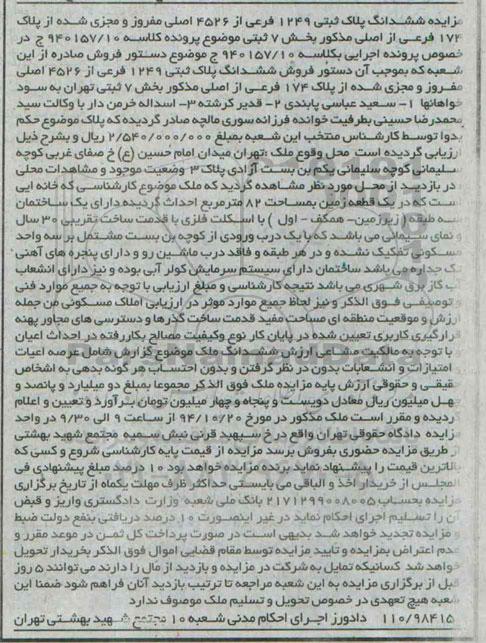 مزایده ششدانگ پلاک ثبتی ۱۲۴۹ فرعی از ۴۵۲۶ اصلی مفروز و مجزی شده از پلاک
۱۷۴ فرعی از اصلی مذکور بخش ۷ ثبتی موضوع پرونده کلاسه ۹۴۰۱۵۷/۱۰ ج در
خصوص پرونده اجرایی بکلاسه ۹۴۰۱۵۷/۱۰ ج موضوع دستور فروش صادره از این
شعبه که بموجب آن دستور فروش ششدانگ پلاک ثبتی ۱۲۴۹ فرعی از ۴۵۲۶ اصلی
مفروز و مجزی شده از پلاک ۱۷۴ فرعی از اصلی مذکور بخش ۷ ثبتی تهران به سود
خواهانها ۱- سعید عباسی پابندی ۲- قدیر کرشته ۳- اسداله خرمن دار با وکالت سید
محمدرضا حسینی بطرفیت خوانده فرزانه سوری مالچه صادر گردیده که پلاک موضوع حکم
بدوا توسط کارشناس منتخب این شعبه بمبلغ ۲/۵۴۰/۰۰۰/۰۰۰ ریال و بشرح ذیل
ارزیابی گردیده است محل وقوع ملک :تهران میدان امام حسین (ع) خ صفای غربی کوچه
سلیمانی کوچه سلیمانی یکم بن بست آزادی پلاک ۳ وضعیت موجود و مشاهدات محلی
در بازدید از محل مورد نظر مشاهده گردید که ملک موضوع کارشناسی که خانه ایی
است که در یک قطعه زمین بمساحت ۸۲ مترمربع احداث گردیده دارای یک ساختمان
سه طبقه ( زیرزمین- همکف - اول ) با اسکلت فلزی با قدمت ساخت تقریبی ۳۰ سال
و نمای سیمانی می باشد که با یک درب ورودی از کوچه بن بست مشتمل بر سه واحد
مسکونی تفکیک نشده و در هر طبقه و فاقد درب ماشین رو و دارای پنجره های آهنی
تک جداره می باشد ساختمان دارای سیستم سرمایش کولر آبی بوده و نیز دارای انشعاب
آب گاز برق شهری می باشد نتیجه کارشناسی و مبلغ ارزیابی با توجه به جمیع موارد فنی
و توصیفی فوق الذکر و نیز لحاظ جمیع موارد موثر در ارزیابی املاک مسکونی من جمله
ارزش و موقعیت منطقه ای مساحت مفید قدمت ساخت گذرها و دسترسی های مجاور پهنه
قرارگیری کاربری تعیین شده در پایان کار نوع وکیفیت مصالح بکاررفته در احداث اعیان
با توجه به مالکیت مشاعی ارزش ششدانگ ملک موضوع گزارش شامل عرصه اعیان
امتیازات و انشعابات بدون در نظر گرفتن و بدون احتساب هر گونه بدهی به اشخاص
حقیقی و حقوقی ارزش پایه مزایده ملک فوق الذکر مجموعا بمبلغ دو میلیارد و پانصد و
چهل میلیون ریال معادل دویست و پنجاه و چهار میلیون تومان برآورد و تعیین و اعلام
گردیده و مقرر است ملک مذکور در مورخ ۹۴/۱۰/۲۰ از ساعت ۹ الی ۹/۳۰ در واحد
مزایده دادگاه حقوقی تهران واقع در خ سپهبد قرنی نبش سمیه مجتمع شهید بهشتی
از طریق مزایده حضوری بفروش برسد مزایده از قیمت پایه کارشناسی شروع و کسی که
بالاترین قیمت را پیشنهاد نماید برنده مزایده خواهد بود ۱۰ درصد مبلغ پیشنهادی فی
المجلس از خریدار اخذ و الباقی می بایستی حداکثر ظرف مهلت یکماه از تاریخ برگزاری
مزایده بحساب ۲۱۷۱۲۹۹۰۰۸۰۰۵ بانک ملی شعبه وزارت دادگستری واریز و قبض
آن را تسلیم اجرای احکام نماید در غیر اینصورت ۱۰ درصد دریافتی بنفع دولت ضبط
و مزایده تجدید خواهد شد بدیهی است در صورت پرداخت کل ثمن در موعد مقرر و
عدم اعتراض بمزایده و تایید مزایده توسط مقام قضایی اموال فوق الذکر بخریدار تحویل
خواهد شد کسانیکه تمایل به شرکت در مزایده و بازدید از مال را دارند می توانند ۵ روز
قبل از برگزاری مزایده به این شعبه مراجعه تا ترتیب بازدید آنان فراهم شود ضمنا این
شعبه هیچ تعهدی در خصوص تحویل و تسلیم ملک موصوف ندارد
۱۱۰/۹۸۴۱۵ دادورز اجرای احکام مدنی شعبه ۱۰ مجتمع شهید بهشتی تهران